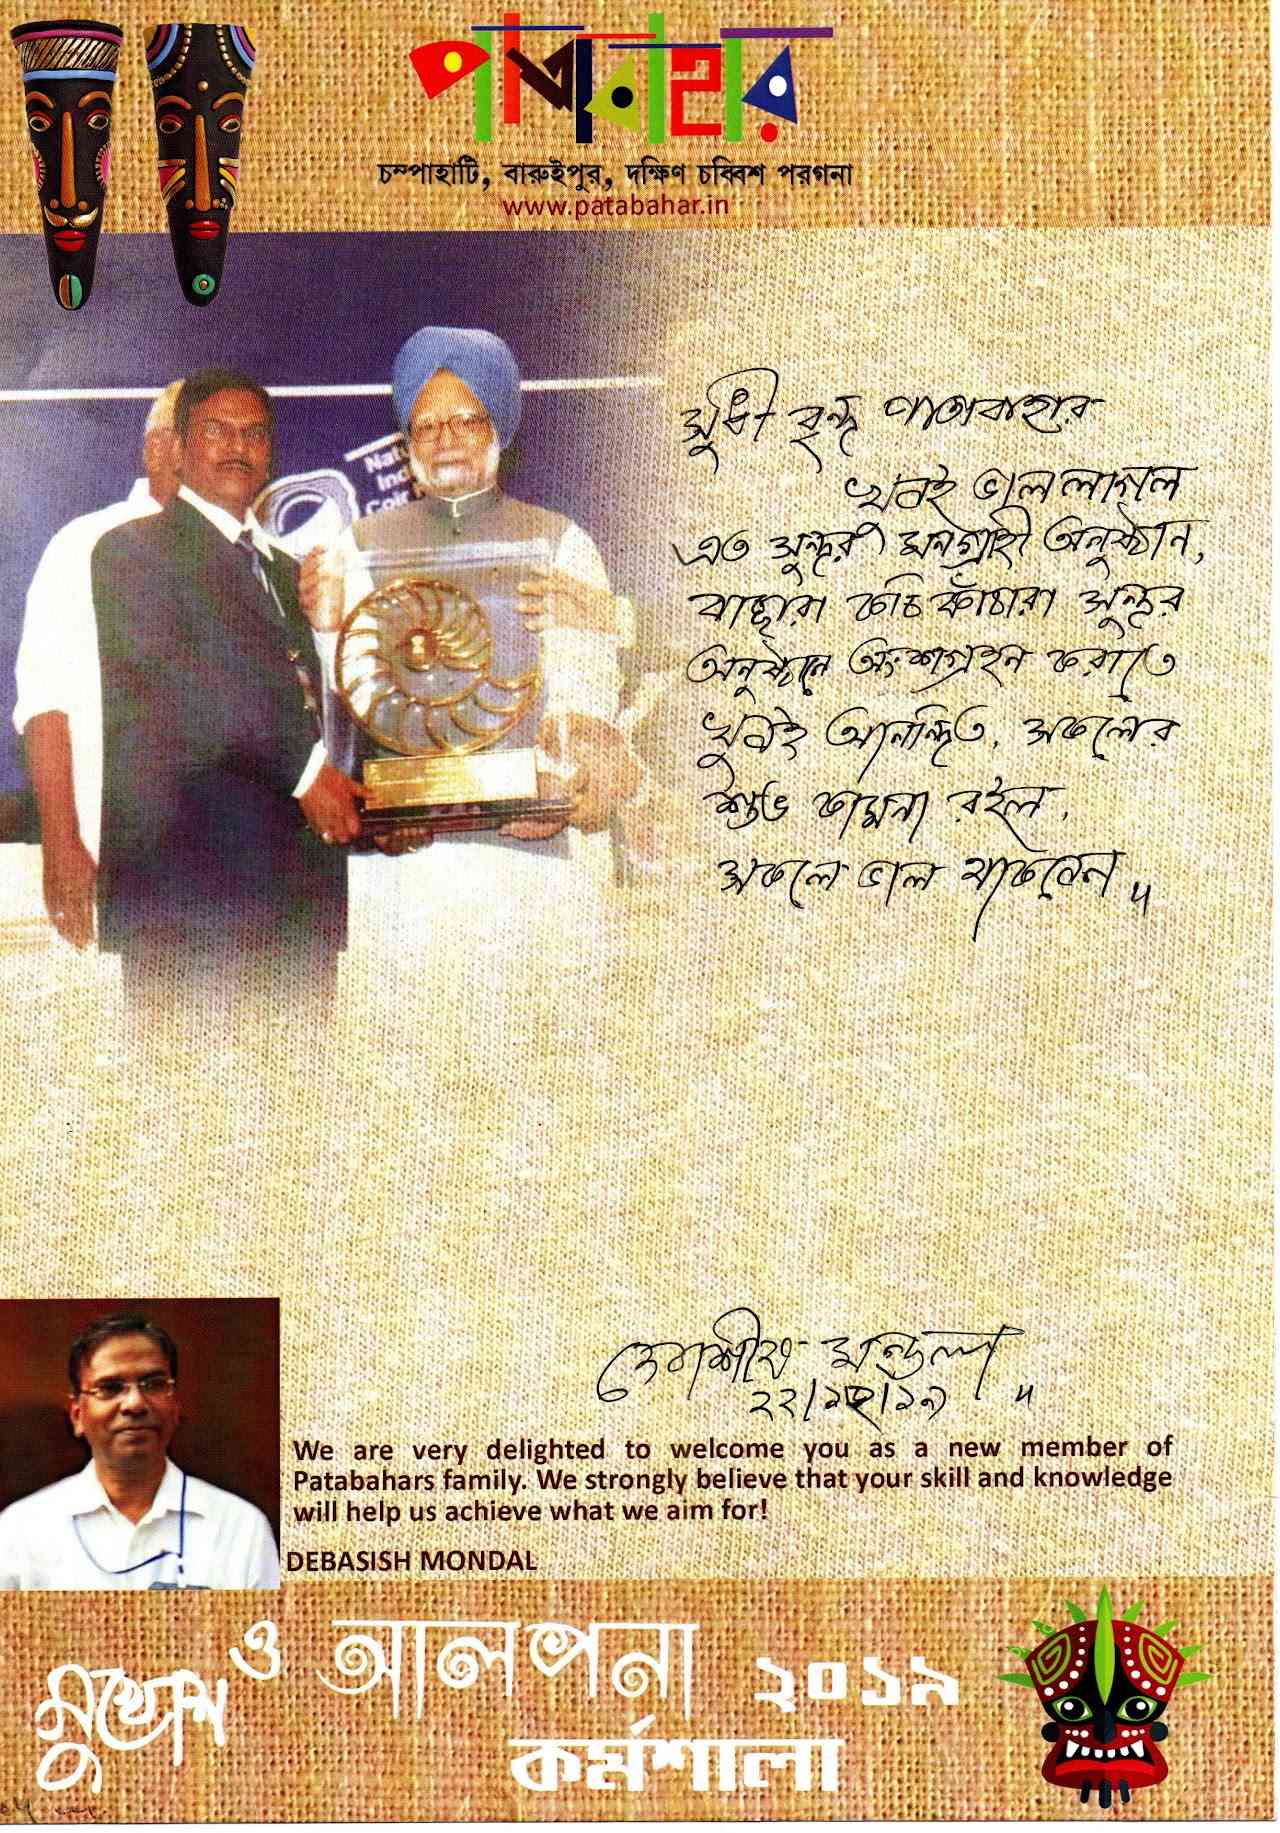 পাতাবাহার
চম্পাহাটি, বারুইপুর, দক্ষিণ চব্বিশ পরগনা
www.patabahar.in
সুধী বৃন্দ পাতাবাহার
খুবই ভাল লাগল
এত সুন্দর মনগ্রাহী অনুষ্ঠান,
বাচ্চারা কচি কাঁচারা সুন্দর
অনুষ্ঠানে অংশগ্রহন করাতে
খুবই আনন্দিত, সকলের
শুভ কামনা রইল,
সকলে ভাল থাকবেন॥
Coir
দেবাশীষ মন্ডল
২২/১২/১৯
We are very delighted to welcome you as a new member of
Patabahars family. We strongly believe that your skill and knowledge
will help us achieve what we aim for!
DEBASISH MONDAL
মুখোশ ও আলপনা ২০১৯
কর্মশালা